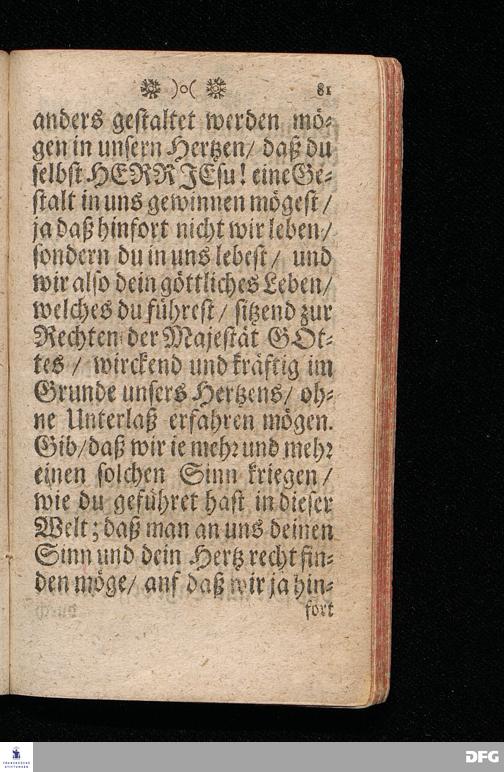 )o( 81
anders gestaltet werden mö-
gen in unsern Hertzen/ daß du
selbst HERR JEsu! eine Ge-
stalt in uns gewinnen mögest/
ja daß hinfort nicht wir leben/
sondern du in uns lebest/ und
wir also dein göttliches Leben/
welches du führest/ sitzend zur
Rechten der Majestät GOt-
tes/ wirckend und kräftig im
Grunde unsers Hertzens/ oh-
ne Unterlaß erfahren mögen.
Gib/daß wir ie mehr und mehr
einen solchen Sinn kriegen/
wie du geführet hast in dieser
Welt; daß man an uns deinen
Sinn und dein Hertz recht fin-
den möge/ auf daß wir ja hin-
fort
FRANCKESCHE
STIFTUNGEN
DFG